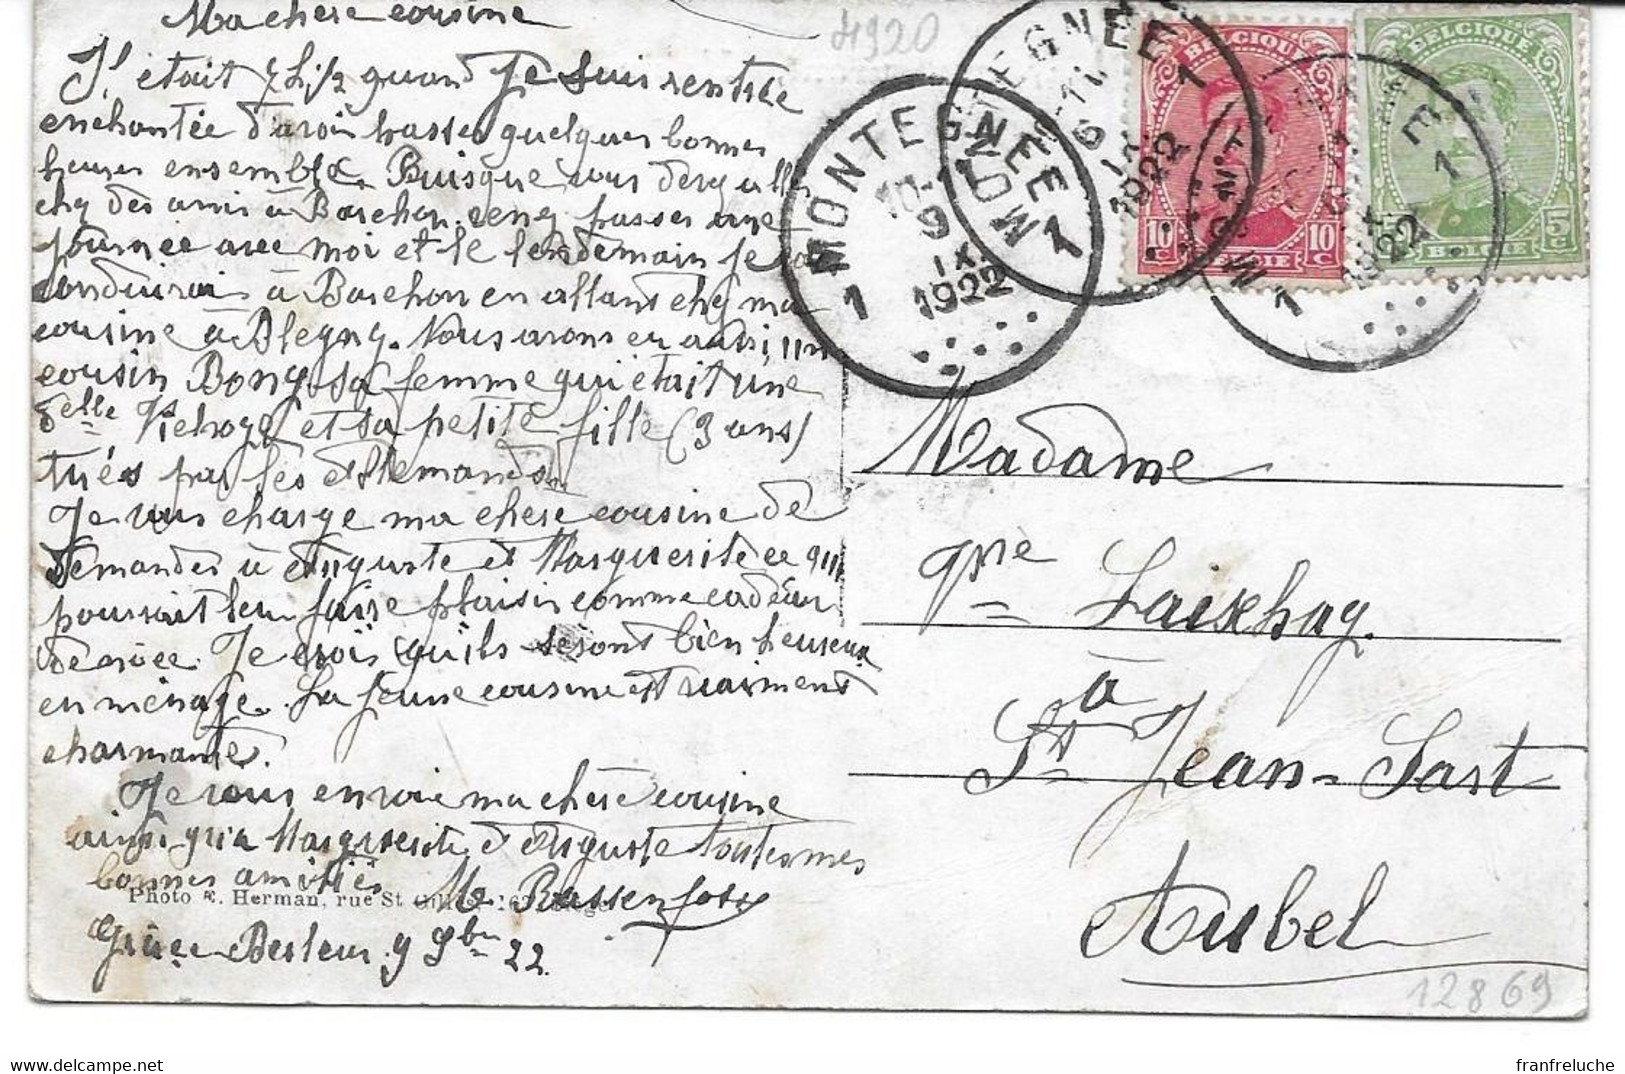 Ma chère cousine
J'était 7 h 1/2 quand je suis rentrée
enchantée d'avoir passer quelques bonnes
heures ensemble. Puisque vous devez aller
chez des amis à Barchon venez passer une
journée avec moi et le lendemain je
conduirai à Barchon en allant chez ma
cousine à Blegny. Nous avons eu aussi un
cousin Bony sa femme qui était une
delle et sa petite fille (3 ans)
tués par les Allemands.
Je vous charge ma chère cousine de
demander à Auguste et Marguerite ce qui
pourrait leur faire plaisir comme cadeau
de noce. Je crois qu'ils seront bien heureux
en ménage. La jeune cousine est vraiment
charmante.
Je vous envoie ma chère cousine
ainsi qu'a Marguerite & Auguste toutes mes
bonnes amitiés
Photo E. Herman, rue St Gilles
Grâce-Berleur 9 9bre 22.
4920
MONTEGNEE 1
10-11
9
IX
1922
MONTEGNEE 1
1922
MONTEGNEE 1
1922
BELGIQUE
10 C
10 C
BELGIE
BELGIQUE
5 C
BELGIE
Madame
Laixhay
à
St Jean-Sart
Aubel
12869
www.delcampe.net
franfreluche